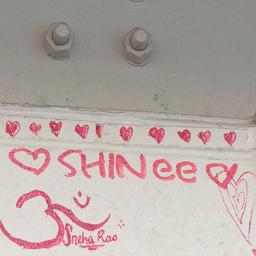 SHINee
ॐ
Sneha Rao